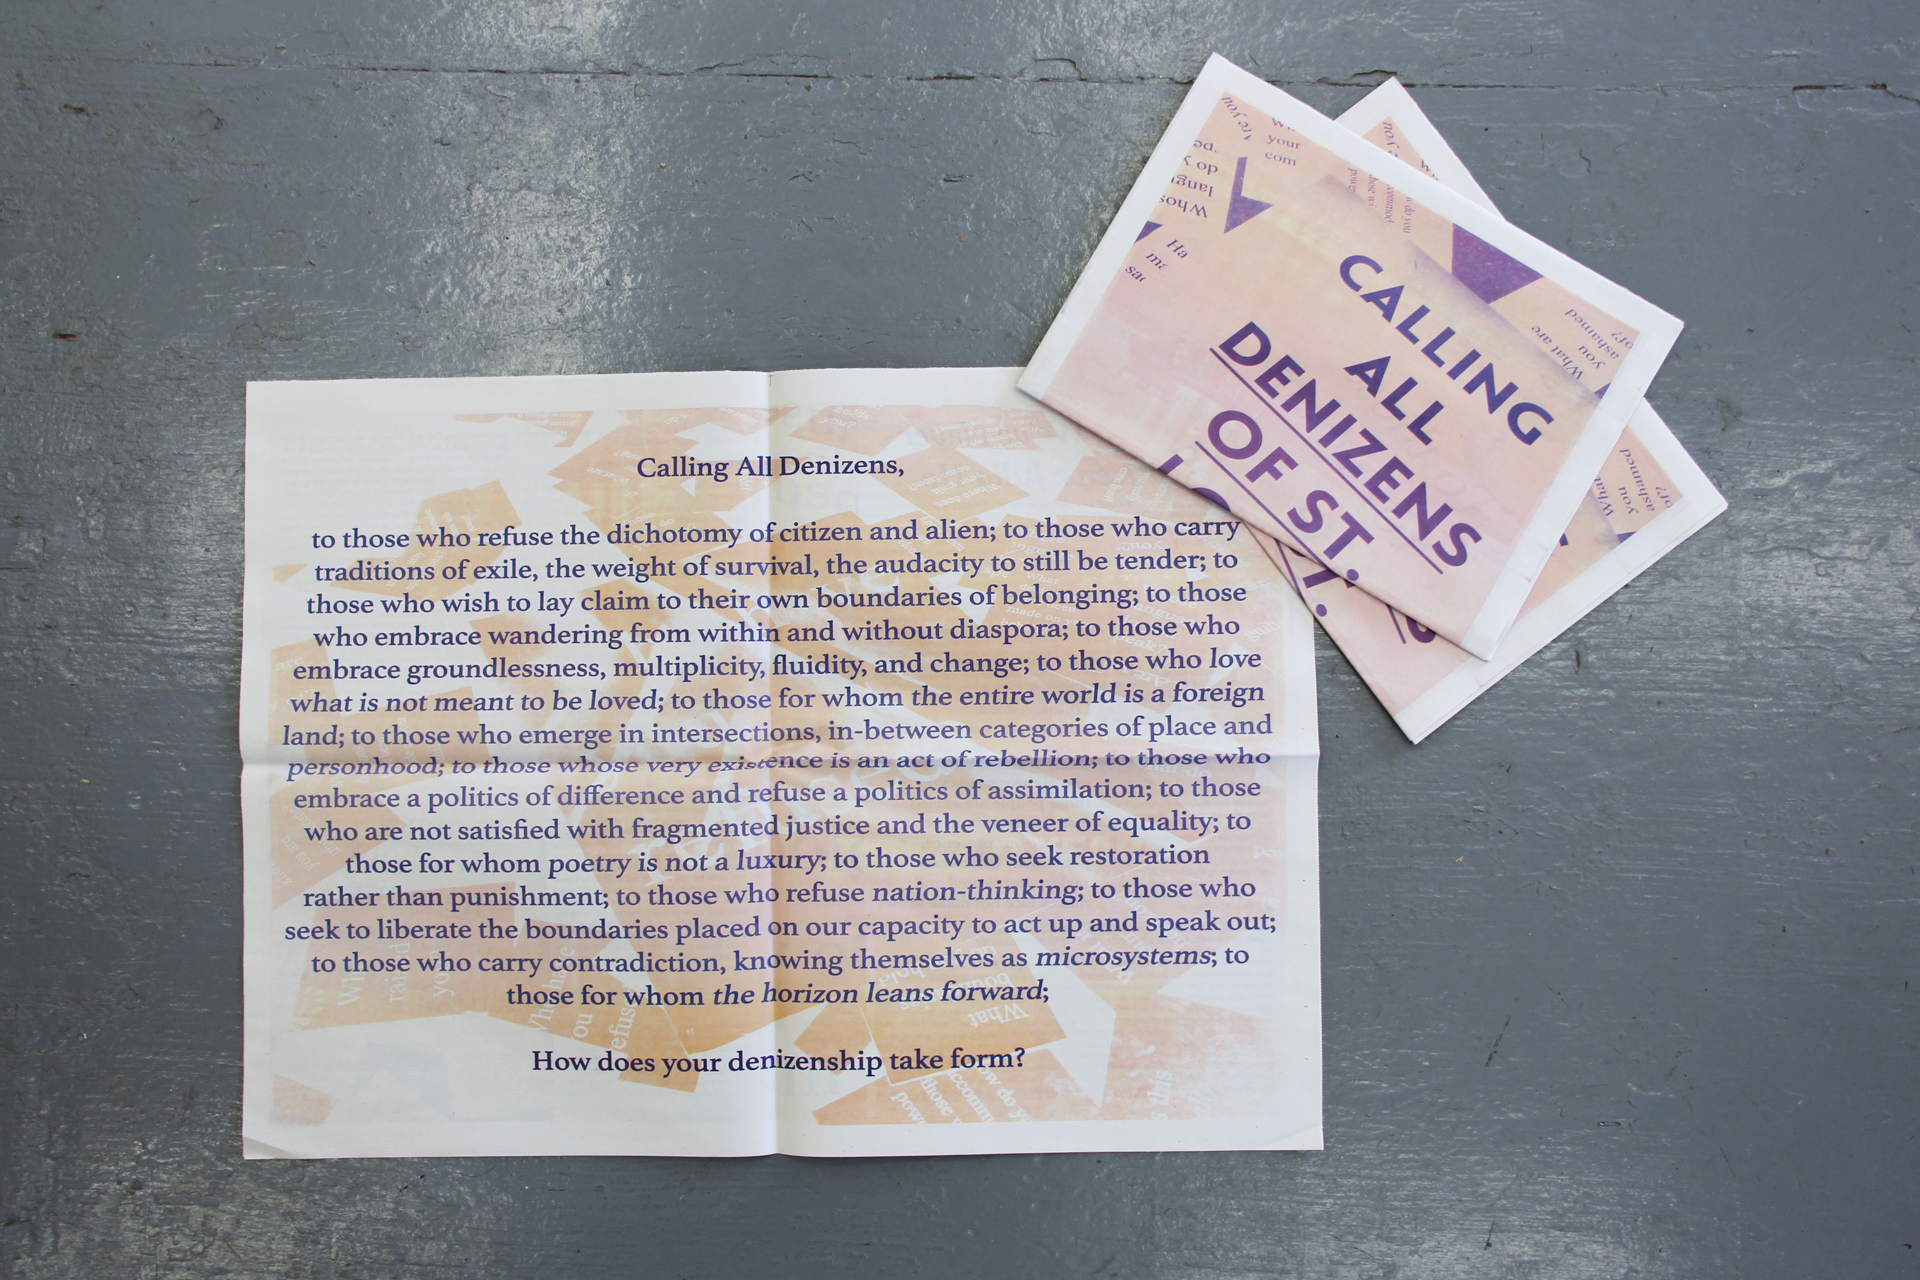 Calling All Denizens,
to those who refuse the dichotomy of citizen and alien; to those who carry
traditions of exile, the weight of survival, the audacity to still be tender; to
those who wish to lay claim to their own boundaries of belonging; to those
who embrace wandering from within and without diaspora; to those who
embrace groundlessness, multiplicity, fluidity, and change; to those who love
what is not meant to be loved; to those for whom the entire world is a foreign
land; to those who emerge in intersections, in-between categories of place and
personhood; to those whose very existence is an act of rebellion; to those who
embrace a politics of difference and refuse a politics of assimilation; to those
who are not satisfied with fragmented justice and the veneer of equality; to
those for whom poetry is not a luxury; to those who seek restoration
rather than punishment; to those who refuse nation-thinking; to those who
seek to liberate the boundaries placed on our capacity to act up and speak out;
to those who carry contradiction, knowing themselves as microsystems; to
those for whom the horizon leans forward;
How does your denizenship take form?
CALLING
ALL
DENIZENS
OF ST.
your
com
do y
Ha
What are
you
ashamed
of?
you
ashamed
of?
What